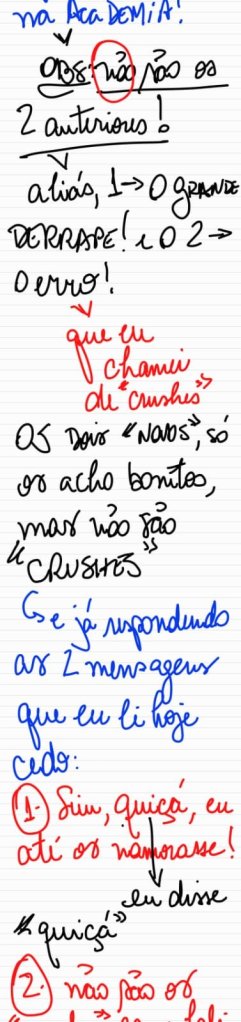 na AcaDEMiA!
OBS: não são os
2 anteriores!
aliás, 1→ O GRANDE
DERRAPE! e O 2→
O erro!
que eu
chamei
de "crushes"
OS Dois "NOVOS", só
os acho bonitos,
mas não são
"CRUSHES"
e já respondendo
as 2 mensagens
que eu li hoje
cedo:
1. Sim, quiçá, eu
até os namorasse!
eu disse
"quiçá"
2. não são os